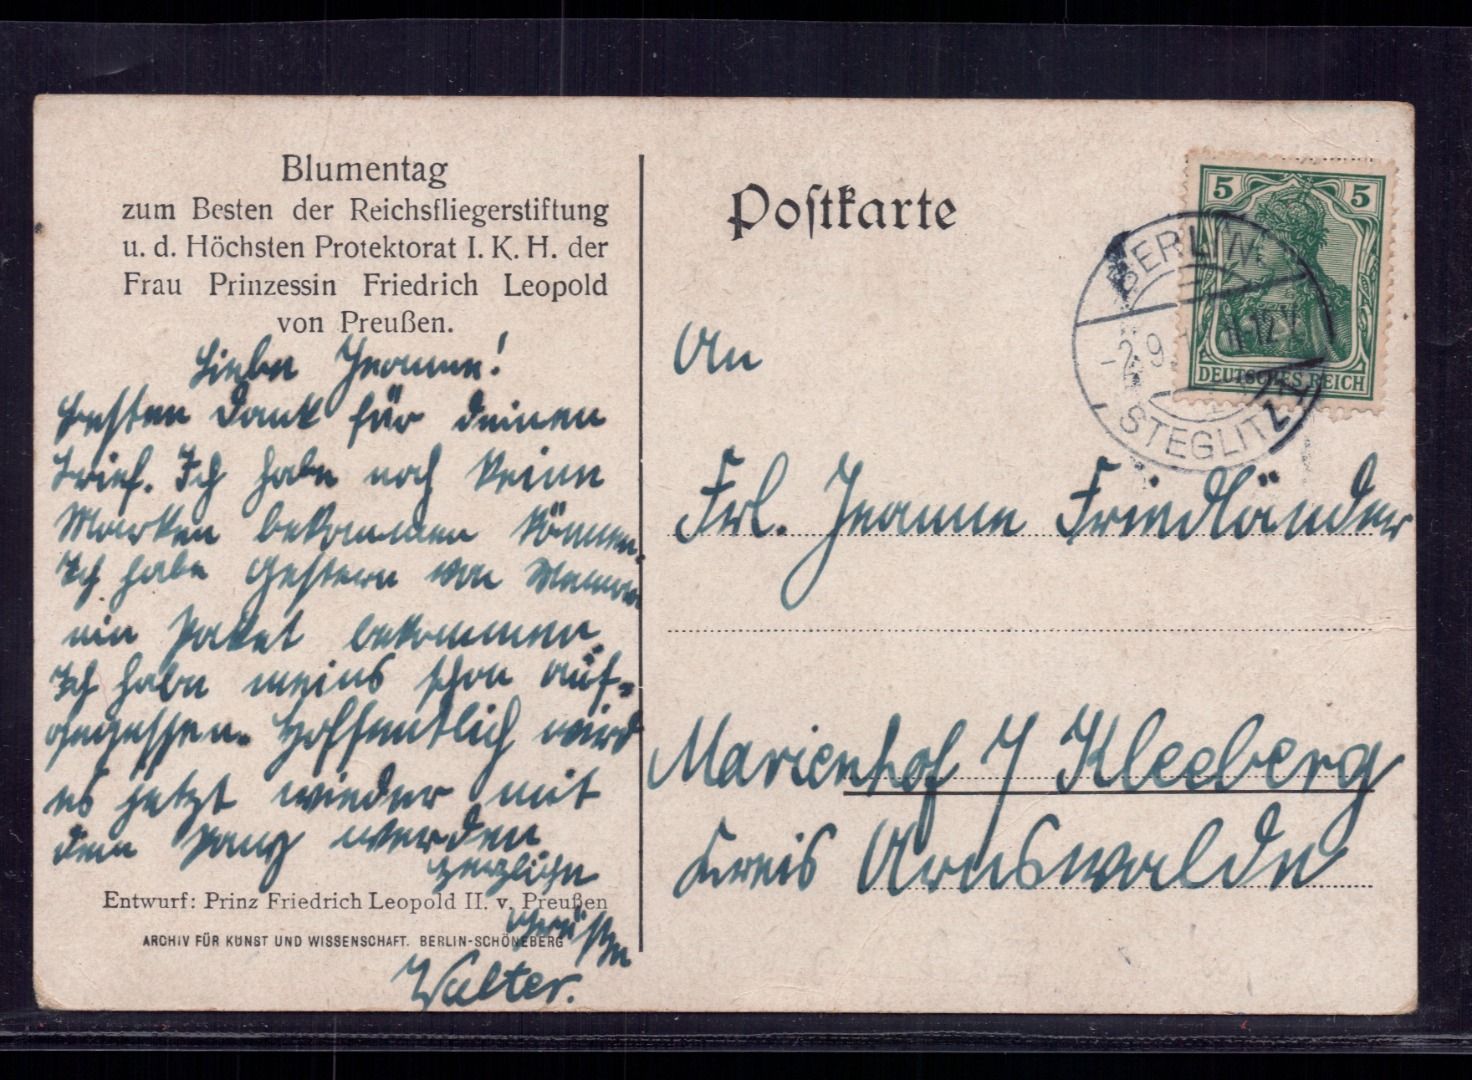 Blumentag
zum Besten der Reichsfliegerstiftung
u. d. Höchsten Protektorat I. K. H. der
Frau Prinzessin Friedrich Leopold
von Preußen.
Liebe Jeanne!
Besten Dank für deinen
Brief. Ich habe noch keine
Marken bekommen können.
Ich habe gestern von Mama
ein Paket bekommen.
Ich habe meins schon auf-
gegessen. Hoffentlich wird
es jetzt wieder mit
dem werden
herzliche
Grüße
Walter.
Entwurf: Prinz Friedrich Leopold II. v. Preußen
ARCHIV FÜR KUNST UND WISSENSCHAFT. BERLIN-SCHÖNEBERG
Postkarte
5 5
DEUTSCHES REICH
BERLIN
-2.9. 11-12V
STEGLITZ 1
An
Frl. Jeanne Friedländer
Marienhof / Kleeberg
Kreis Arnswalde